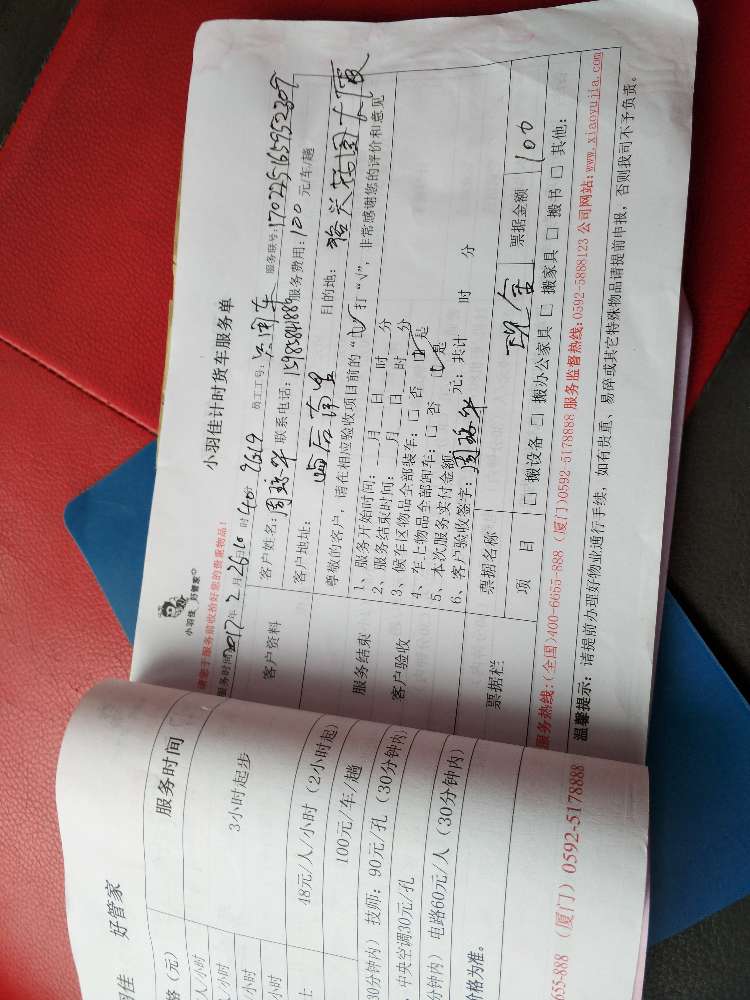 小羽佳 好管家
小羽佳计时货车服务单
请您于服务前收拾好您的贵重物品!
服务时间: 2017年2月26日10时40分 2619 员工工号: 服务联号: 17022516595
客户资料
客户姓名: 周 联系电话: 服务费用: 100 元/车/趟
客户地址: 后 目的地:
尊敬的客户, 请在相应验收项目前的“□”打“√”, 非常感谢您的评价和意见
服务结束
客户验收
1、服务开始时间: 月 日 时 分
2、服务结束时间: 月 日 时 分
3、候车区物品全部装车: □ 否 是
4、车上物品全部卸车: □ 否 是
5、本次服务实付金额 元; 共计 时 分
6、客户验收签字: 周
票据栏
票据名称 现金 票据金额 100
项 目 □ 搬设备 □ 搬办公家具 □ 搬家具 □ 搬书 □ 其他:
服务热线: (全国)400-6655-888 (厦门)0592-5178888 服务监督热线: 0592-5888123 公司网站: www.xiaoyujia.com
温馨提示: 请提前办理好物业通行手续, 如有贵重、易碎或其它特殊物品请提前申报, 否则我司不予负责。
羽佳 好管家
格(元) 服务时间
人/小时
/小时 3小时起步
小时
小时
士 48元/人/小时 (2小时起)
100元/车/趟
30分钟内) 技师: 90元/孔 (30分钟内)
, 中央空调30元/孔
分钟内) 电路60元/人 (30分钟内)
价格为准。
655-888 (厦门) 0592-5178888